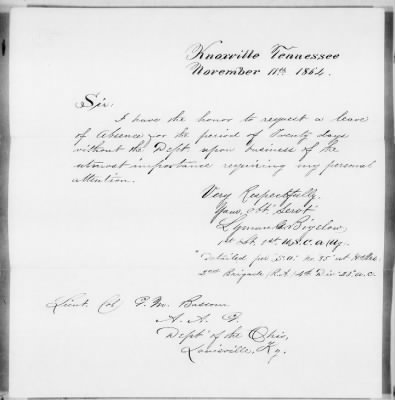 Knoxville Tennessee
November 11th 1864.
Sir:
I have the honor to request a leave
of Absence for the period of Twenty days
without the Dept. upon business of the
utmost importance requiring my personal
attention.
Very Respectfully.
Your Obt. Servt
Lyman Bigelow
1st Lt. 1st U.S.C.A.
Detailed per S.O. no. 35 at Hd Qrs.
2nd Brigade 4th Div 23 A.C.
Lieut. Col. Bascom
A. A. G.
Dept of the Ohio,
Louisville, Ky.